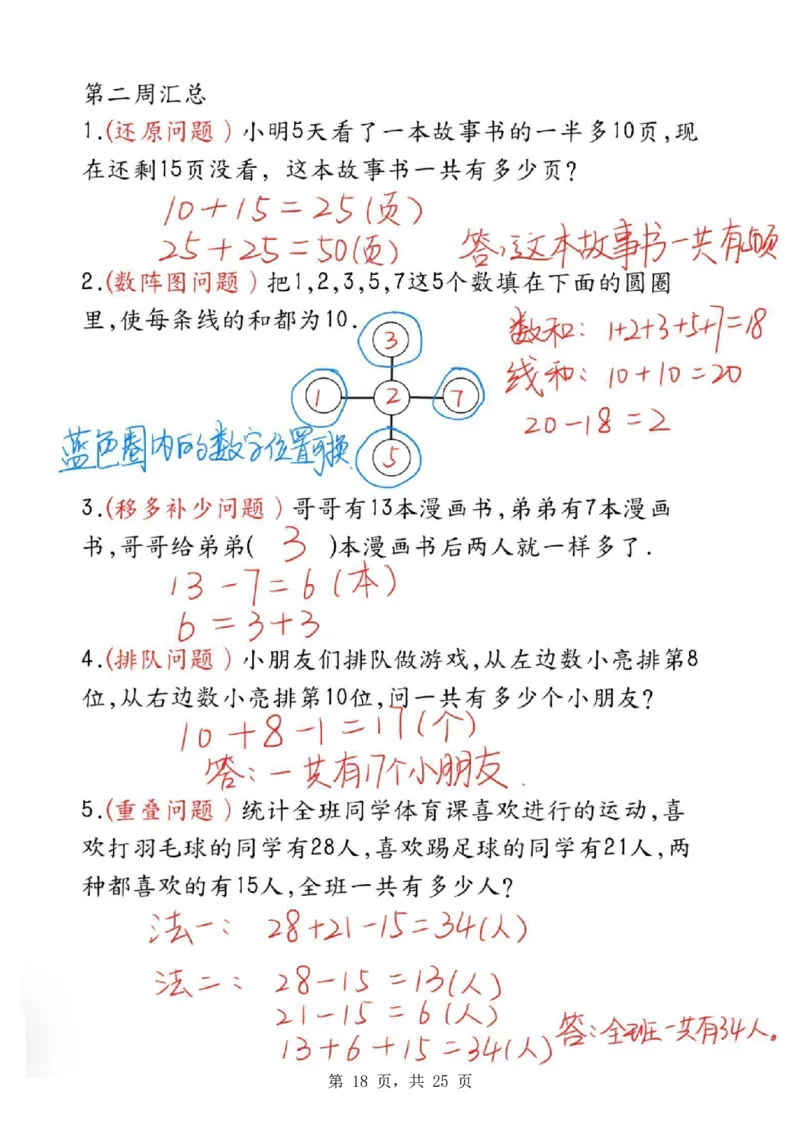 第二周汇总
1.(还原问题)小明5天看了一本故事书的一半多10页,现
在还剩15页没看,这本故事书一共有多少页?
10+15=25(页)
25+25=50(页) 答:这本故事书一共有50页
2.(数阵图问题)把1,2,3,5,7这5个数填在下面的圆圈
里,使每条线的和都为10.
数和: 1+2+3+5+7=18
3
线和: 10+10=20
1 2 7
20-18=2
蓝色圈内的数字位置可换
5
3.(移多补少问题)哥哥有13本漫画书,弟弟有7本漫画
书,哥哥给弟弟( 3 )本漫画书后两人就一样多了.
13-7=6(本)
6=3+3
4.(排队问题)小朋友们排队做游戏,从左边数小亮排第8
位,从右边数小亮排第10位,问一共有多少个小朋友?
10+8-1=17(个)
答:一共有17个小朋友.
5.(重叠问题)统计全班同学体育课喜欢进行的运动,喜
欢打羽毛球的同学有28人,喜欢踢足球的同学有21人,两
种都喜欢的有15人,全班一共有多少人?
法一: 28+21-15=34(人)
法二: 28-15=13(人)
21-15=6(人)
13+6+15=34(人) 答:全班一共有34人。
第 18 页, 共 25 页